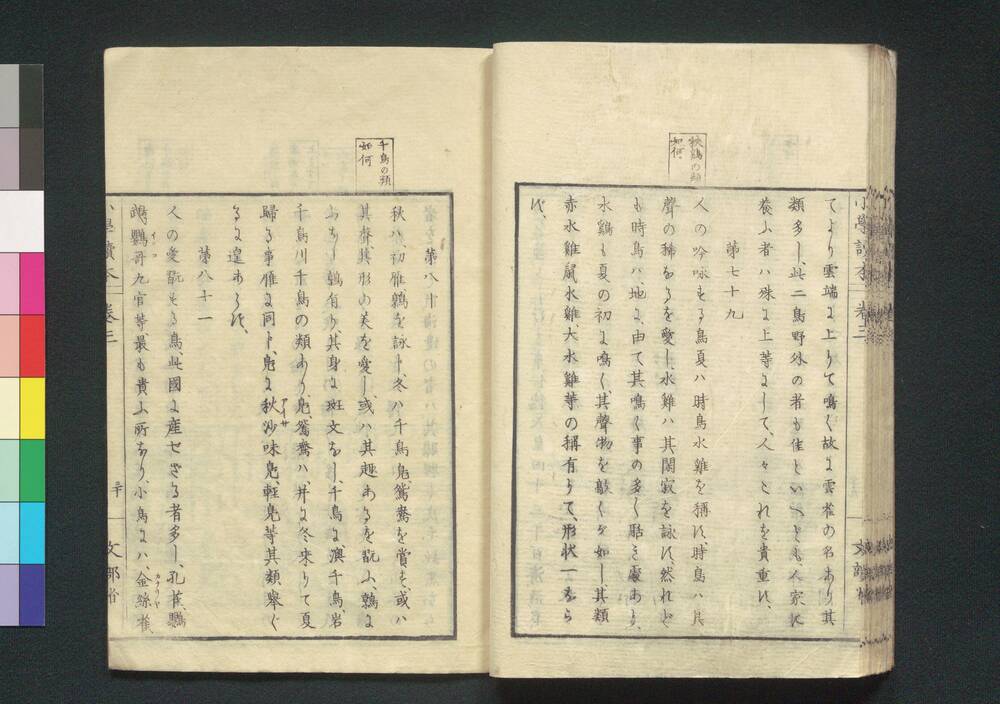 小學讀本 卷三
文部省
てより雲端に上りて鳴く故に雲雀の名あり其
類多し、此二鳥野外の者も佳といへども、人家に
養ふ者ハ殊に上等にして、人々これを貴重す、
第七十九
秧鷄の類
如何
人の吟咏する鳥夏ハ時鳥水雞を稱す、時鳥ハ其
聲の稀なるを愛し、水雞ハ其閑寂を詠す、然れと
も時鳥ハ地に由て其鳴く事の多く聒き處あり、
水鷄も夏の初に鳴く、其聲物を敲くか如し、其類
赤水雞鼠水雞、大水雞等の稱有りて、形状一なら
す、
第八十
千鳥の類
如何
秋ハ、初雁鶉を詠し、冬ハ千鳥鳧鴛鴦を賞す、或ハ
其聲其形の美を愛し、或ハ其趣あるを翫ふ、鶉に
鶉有り、其身に斑文なし、千鳥に、濱千鳥、岩
千鳥川千鳥の類あり、鳧、鴛鴦ハ、幷に冬來りて夏
歸る事雁に同し、鳧に秋沙味鳧、軽鳧等其類擧く
アイサ
るに遑あらす、
第八十一
人の愛翫する鳥、此國に産せざる者多し、孔雀、鸚
鵡、鸚哥九官等、最も貴ふ所なり、小鳥にハ、金絲雀、
インコ
カナリヤ
小學讀本 卷三
三十
文部省